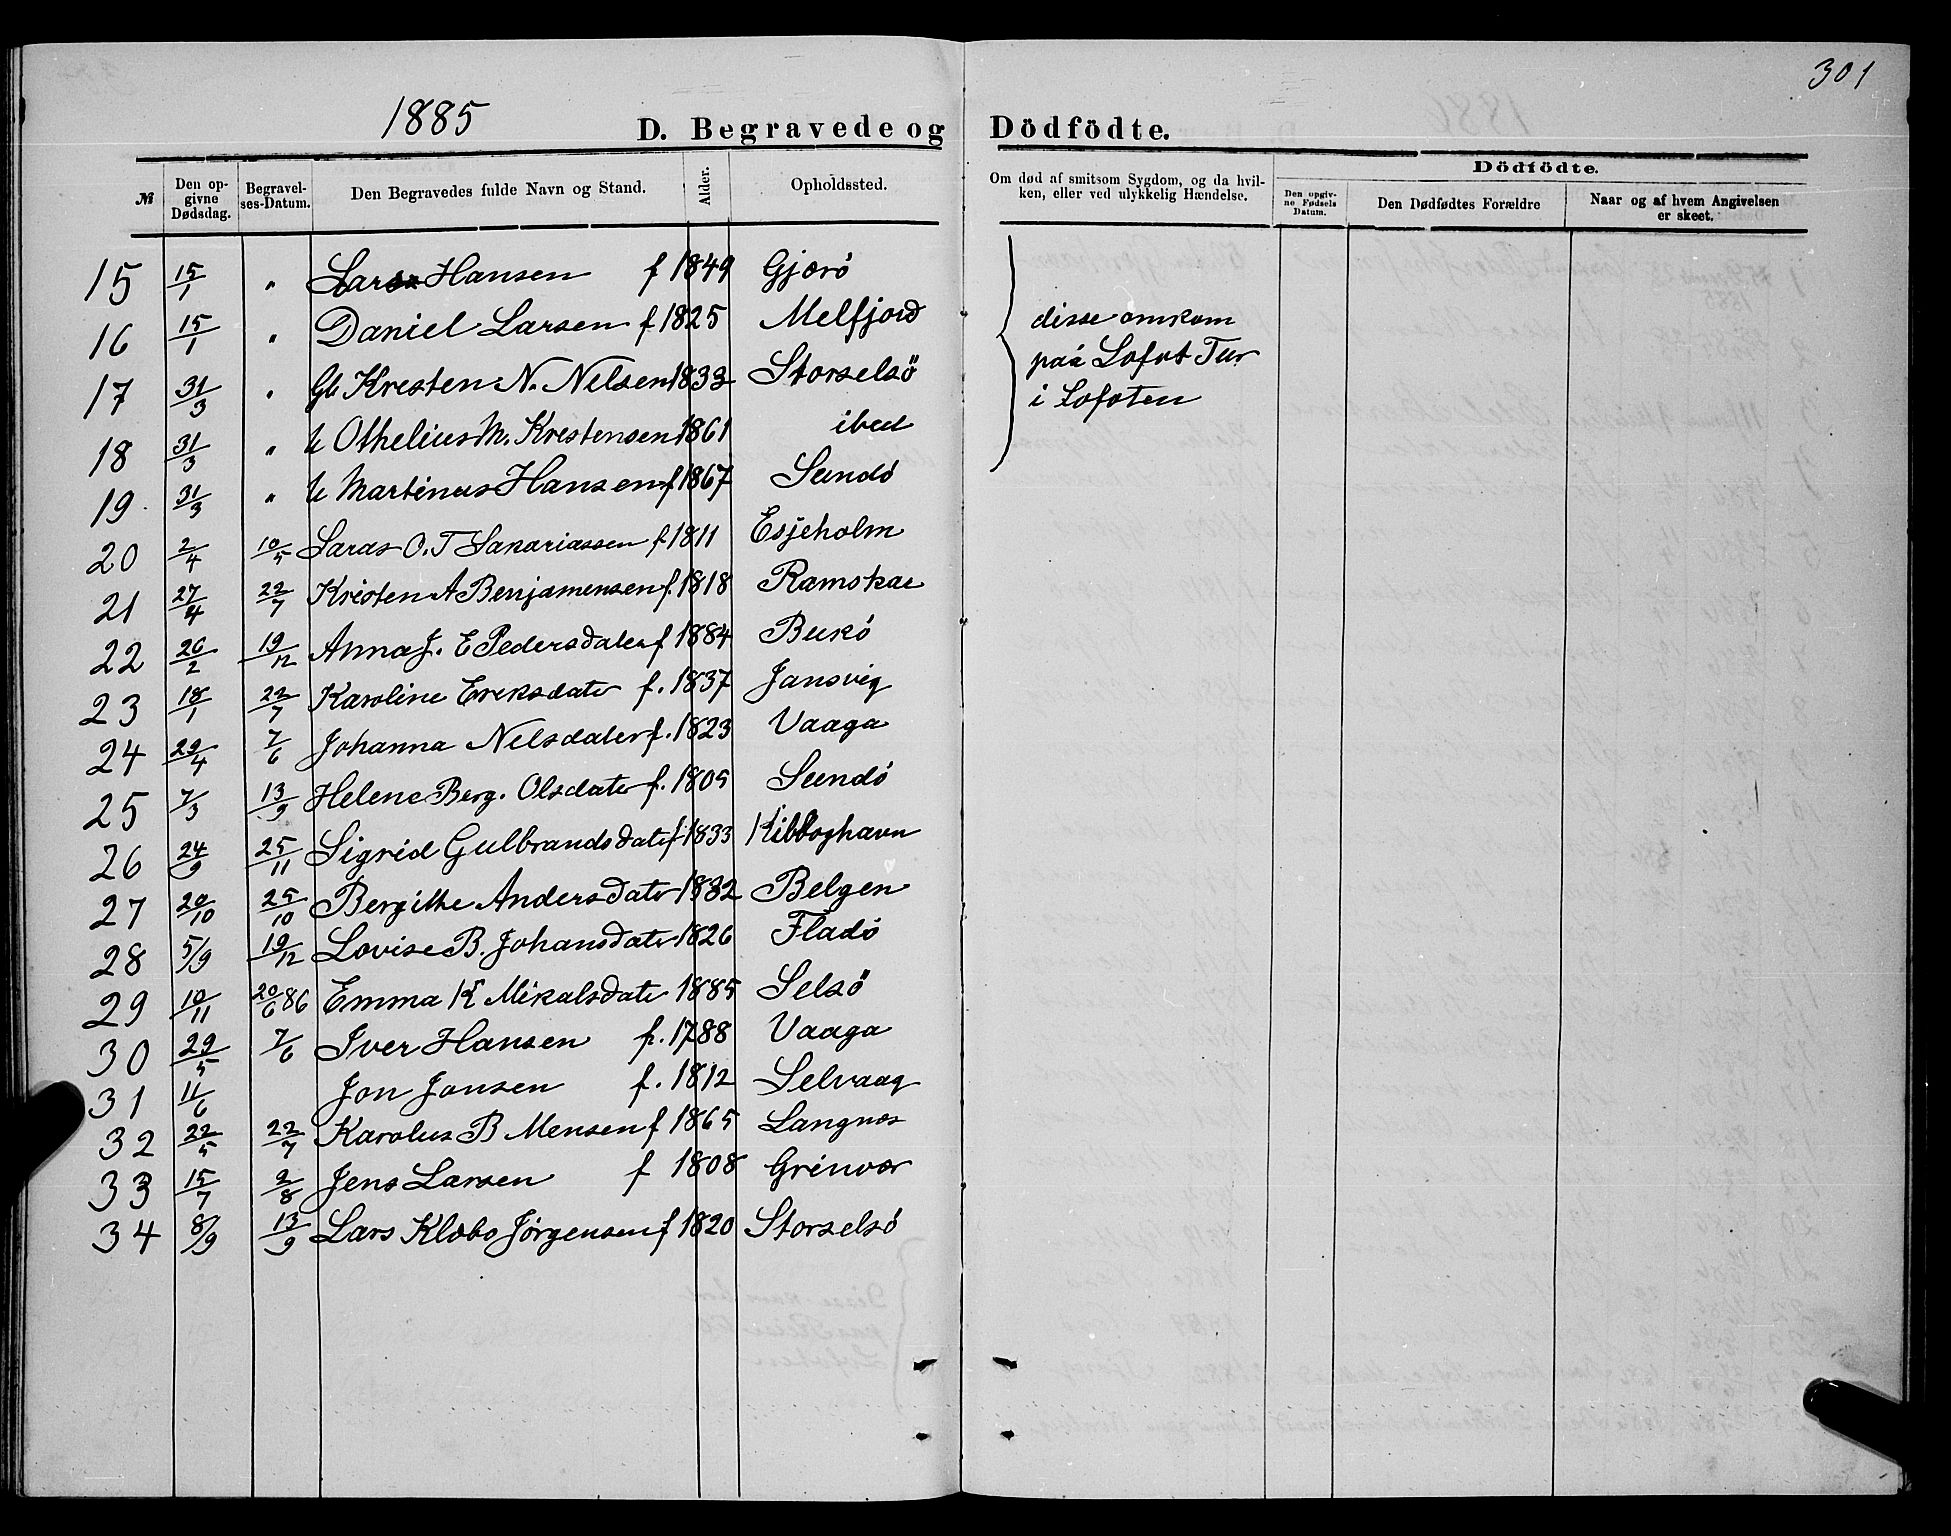 301
1885
D. Begravede og Dödfödte.
№ Den opgivne Dødsdag. Begravelses-Datum. Den Begravedes fulde Navn og Stand. Alder. Opholdssted. Om død af smitsom Sygdom, og da hvilken, eller ved ulykkelig Hændelse. Dödfödte. Den opgivne Fødsels Datum. Den Dødfødtes Forældre Naar og af hvem Angivelsen er skeet.
15 15/1 " Lars Hansen f 1849 Gjærö
16 15/1 " Daniel Larsen f 1825 Melfjord
17 31/3 " Gb Kresten N. Nelsen 1833 Storselsö
18 31/3 " U Othelius M. Krestensen 1861 ibid
19 31/3 " U Martinus Hansen f 1867 Sundö
disse omkom
paa Lofot Tur
i Lofoten
20 2/4 10/5 Laras O. T Sakariassen f 1811 Esjeholm
21 27/4 22/7 Kristen A Benjamensen f. 1818 Ramskar
22 26/2 19/12 Anna J. E Pedersdater f 1884 Bukö
23 18/1 22/7 Karoline Ereksdater f. 1837 Jansvig
24 29/4 7/6 Johanna Nelsdater f. 1823 Vaaga
25 7/3 13/9 Helene Berg. Olsdater f. 1805 Sundö
26 24/9 25/11 Sigrid Gulbrandsdater f 1833 Kibboghavn
27 20/10 25/10 Bergithe Andersdater 1832 Belgen
28 5/9 19/12 Lovise B. Johansdater 1826 Fladö
29 10/11 20/6 86 Emma K Mikalsdater 1885 Selsö
30 29/5 7/6 Iver Hansen f. 1788 Vaaga
31 11/6 Jon Jonsen f. 1812 Selvaag
32 22/5 22/7 Karolus B Mensen f 1865 Langnæs
33 15/7 2/8 Jens Larsen f 1808 Grinvær
34 8/9 13/9 Lars Klæbo Jørgensen f 1820 Storselsö